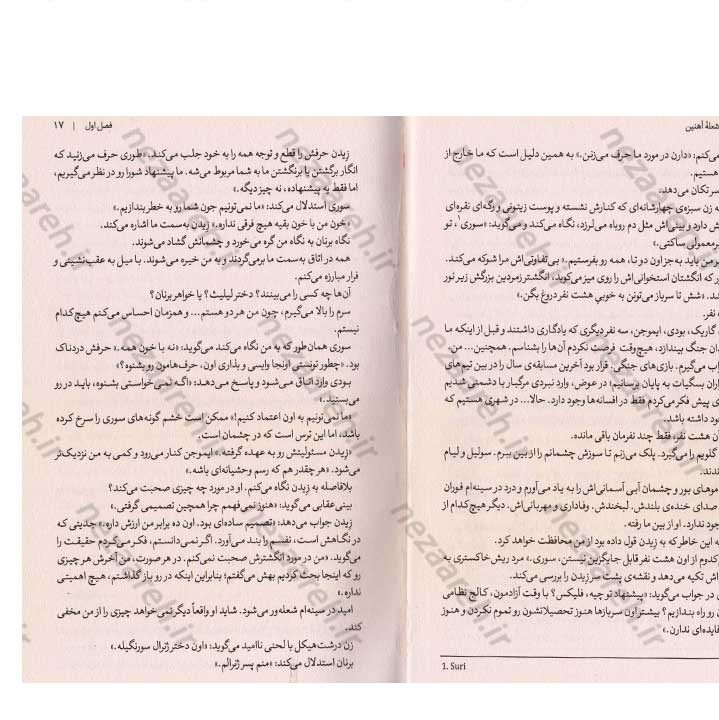 شعلهٔ آهنین
می‌کنم: «دارن در مورد ما حرف می‌زنن.» به همین دلیل است که ما خارج از
هستیم.
سر تکان می‌دهد.
به زن سبزه‌ی چهارشانه‌ای که کنارش نشسته و پوست زیتونی و رگه‌ای نقره‌ای
ش دارد و بینی‌اش مثل دم روباه می‌لرزد، نگاه می‌کند و می‌گوید: «سوری¹، تو
یرمعمولی ساکتی.»
ر من باید به‌جز اون دو تا، همه رو بفرستیم.» بی‌تفاوتی‌اش مرا شوکه می‌کند.
ور که انگشتان استخوانی‌اش را روی میز می‌کوبد، انگشتر زمردین بزرگش زیر نور
شد. «شش تا سرباز می‌تونن به خوبی هشت نفر دروغ بگن.»
نفر.
گاریک، بودی، ایموجن، سه نفر دیگری که یادگاری داشتند و قبل از اینکه ما
دان جنگ بیندازد، هیچ‌وقت فرصت نکردم آن‌ها را بشناسم. همچنین... من.
اب می‌گیرم. بازی‌های جنگی. قرار بود آخرین مسابقه‌ی سال را در بین تیم‌های
اران بسگیات به پایان برسانیم؛ در عوض، وارد نبردی مرگبار با دشمنی شدیم
ی پیش فکر می‌کردم فقط در افسانه‌ها وجود دارد. حالا... در شهری هستیم که
جود داشته باشد.
ن هشت نفر، فقط چند نفرمان باقی مانده.
گلویم را می‌گیرد. پلک می‌زنم تا سوزش چشمانم را از بین ببرم. سولیل و لیام
ندند.
موهای بور و چشمان آبی آسمانی‌اش را به یاد می‌آورم و درد در سینه‌ام فوران
صدای خنده‌ی بلندش. لبخندش. وفاداری و مهربانی‌اش. دیگر هیچ‌کدام از
جود ندارد. او از بین ما رفته.
به این خاطر که به زیدن قول داده بود از من محافظت خواهد کرد.
کدوم از اون هشت نفر قابل جایگزین نیستن، سوری.» مرد ریش خاکستری به
اش تکیه می‌دهد و نقشه‌ی پشت سر زیدن را بررسی می‌کند.
ن در جواب می‌گوید: «پیشنهاد تو چیه، فلیکس؟ با وقت آزادمون، کالج نظامی
ن رو راه بندازیم؟ بیشتر اون سربازها هنوز تحصیلاتشون رو تموم نکردن و هنوز
فایده‌ای ندارن.»
1. Suri
فصل اول | ۱۷
زیدن حرفش را قطع و توجه همه را به خود جلب می‌کند. «طوری حرف می‌زنید که
انگار برگشتن یا برنگشتن ما به شما مربوط می‌شه. ما پیشنهاد شورا رو در نظر می‌گیریم،
اما فقط یه پیشنهاده، نه چیز دیگه.»
سوری استدلال می‌کند: «ما نمی‌تونیم جون شما رو به خطر بندازیم.»
«خون من با خون بقیه هیچ فرقی نداره.» زیدن به‌سمت ما اشاره می‌کند.
نگاه برنان به نگاه من گره می‌خورد و چشمانش گشاد می‌شوند.
همه در اتاق به‌سمت ما برمی‌گردند و به من خیره می‌شوند. با میل به عقب‌نشینی و
فرار مبارزه می‌کنم.
آن‌ها چه کسی را می‌بینند؟ دختر لیلیث؟ یا خواهر برنان؟
سرم را بالا می‌گیرم، چون من هر دو هستم... و همزمان احساس می‌کنم هیچ‌کدام
نیستم.
سوری همان‌طور که به من نگاه می‌کند می‌گوید: «نه با خون همه.» حرفش دردناک
بود. «چطور تونستی اونجا وایسی و بذاری اون، حرف‌هامون رو بشنوه؟»
بودی وارد اتاق می‌شود و پاسخ می‌دهد: «اگه نمی‌خواستی بشنوه، باید در رو
می‌بستید.»
«ما نمی‌تونیم به اون اعتماد کنیم!» ممکن است خشم گونه‌های سوری را سرخ کرده
باشد، اما این ترس است که در چشمان است.
«زیدن مسئولیتش رو به عهده گرفته.» ایموجن کنار می‌رود و کمی به من نزدیک‌تر
می‌شود. «هر چقدر هم که رسم وحشیانه‌ای باشه.»
بلافاصله به زیدن نگاه می‌کنم. او در مورد چه چیزی صحبت می‌کند؟
بینی‌عقابی می‌گوید: «هنوز نمی‌فهمم چرا همچین تصمیمی گرفتی.»
زیدن جواب می‌دهد: «تصمیم ساده‌ای بود. اون ده برابر من ارزش داره.» جدیتی که
در نگاهش است، نفسم را بند می‌آورد. اگر نمی‌دانستم، فکر می‌کردم حقیقت را
می‌گوید. «من در مورد انگشترش صحبت نمی‌کنم. در هر صورت، من آخرش هر چیزی
رو که اینجا بحث کردیم بهش می‌گفتم؛ بنابراین اینکه در رو باز گذاشتم، هیچ اهمیتی
نداره.»
امید در سینه‌ام شعله‌ور می‌شود. شاید او واقعاً دیگر نمی‌خواهد چیزی را از من مخفی
کند.
زن درشت‌هیکل با لحنی ناامید می‌گوید: «اون دختر ژنرال سورنگیله.»
برنان استدلال می‌کند: «منم پسر ژنرالم.»
nezaareh.ir